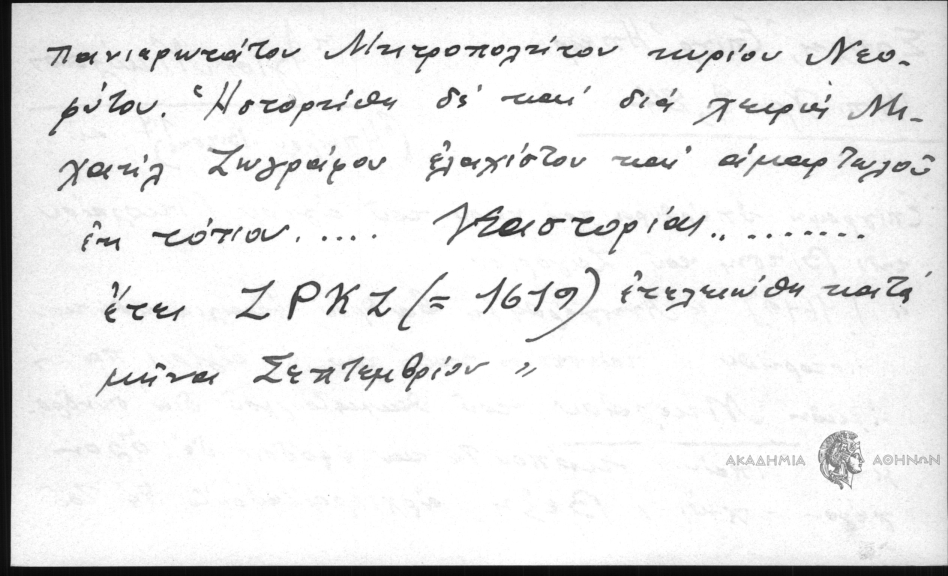 πανιερωτάτου Μητροπολίτου κυρίου Νεο-
φύτου. Ἡστορίθη δέ καί διά χειρός Μι-
χαήλ Ζωγράφου ἐλαχίστου καί ἁμαρτωλοῦ
ἐκ τόπου..... Καστορίας.........
ἔτει ΖΡΚΖ (= 1619) ἐτελειώθη κατά
μῆνα Σεπτεμβρίου "
ΑΚΑΔΗΜΙΑ ΑΘΗΝΩΝ